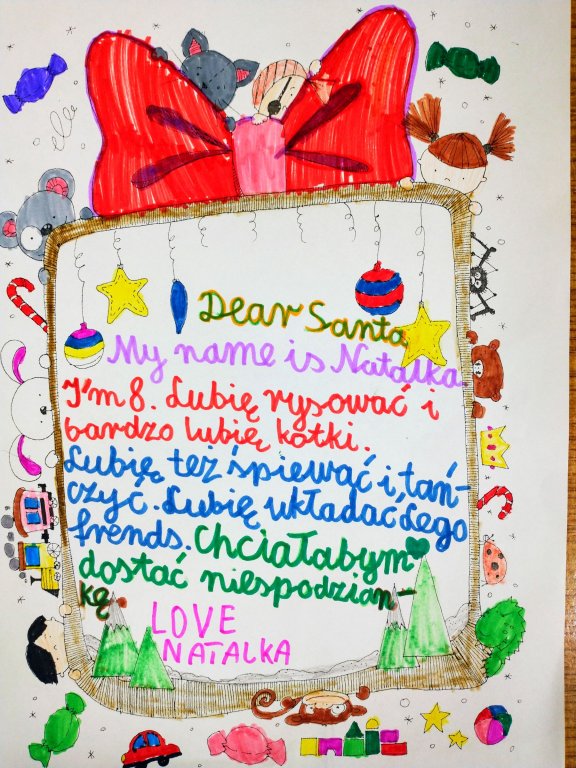 Dear Santa
My name is Natalka.
I'm 8. Lubię rysować i
bardzo lubię kotki.
Lubię też śpiewać i tań-
czyć. Lubię układać Lego
frends. Chciałabym
dostać niespodzian-
kę
LOVE
NATALKA